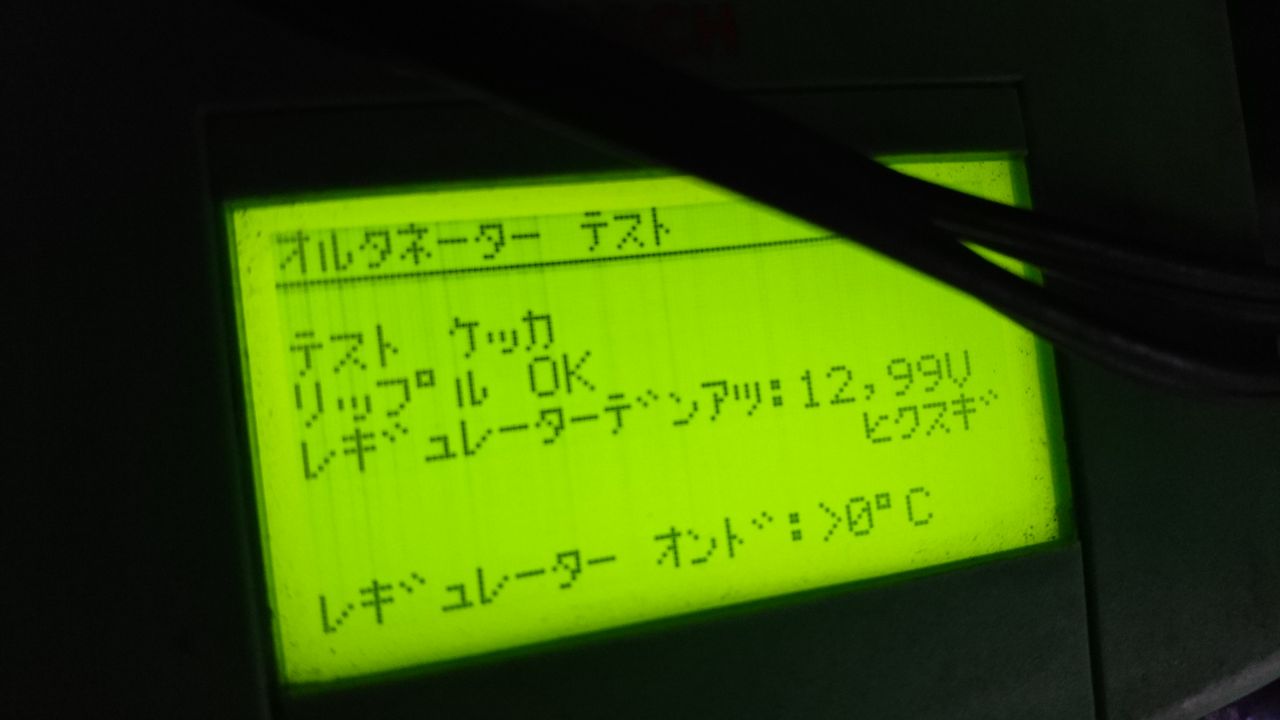 オルタネーター テスト
テスト ケッカ
リップル OK
レギュレーターデンアツ:12,99V
ヒクスギ
レギュレーター オンド:>0°C